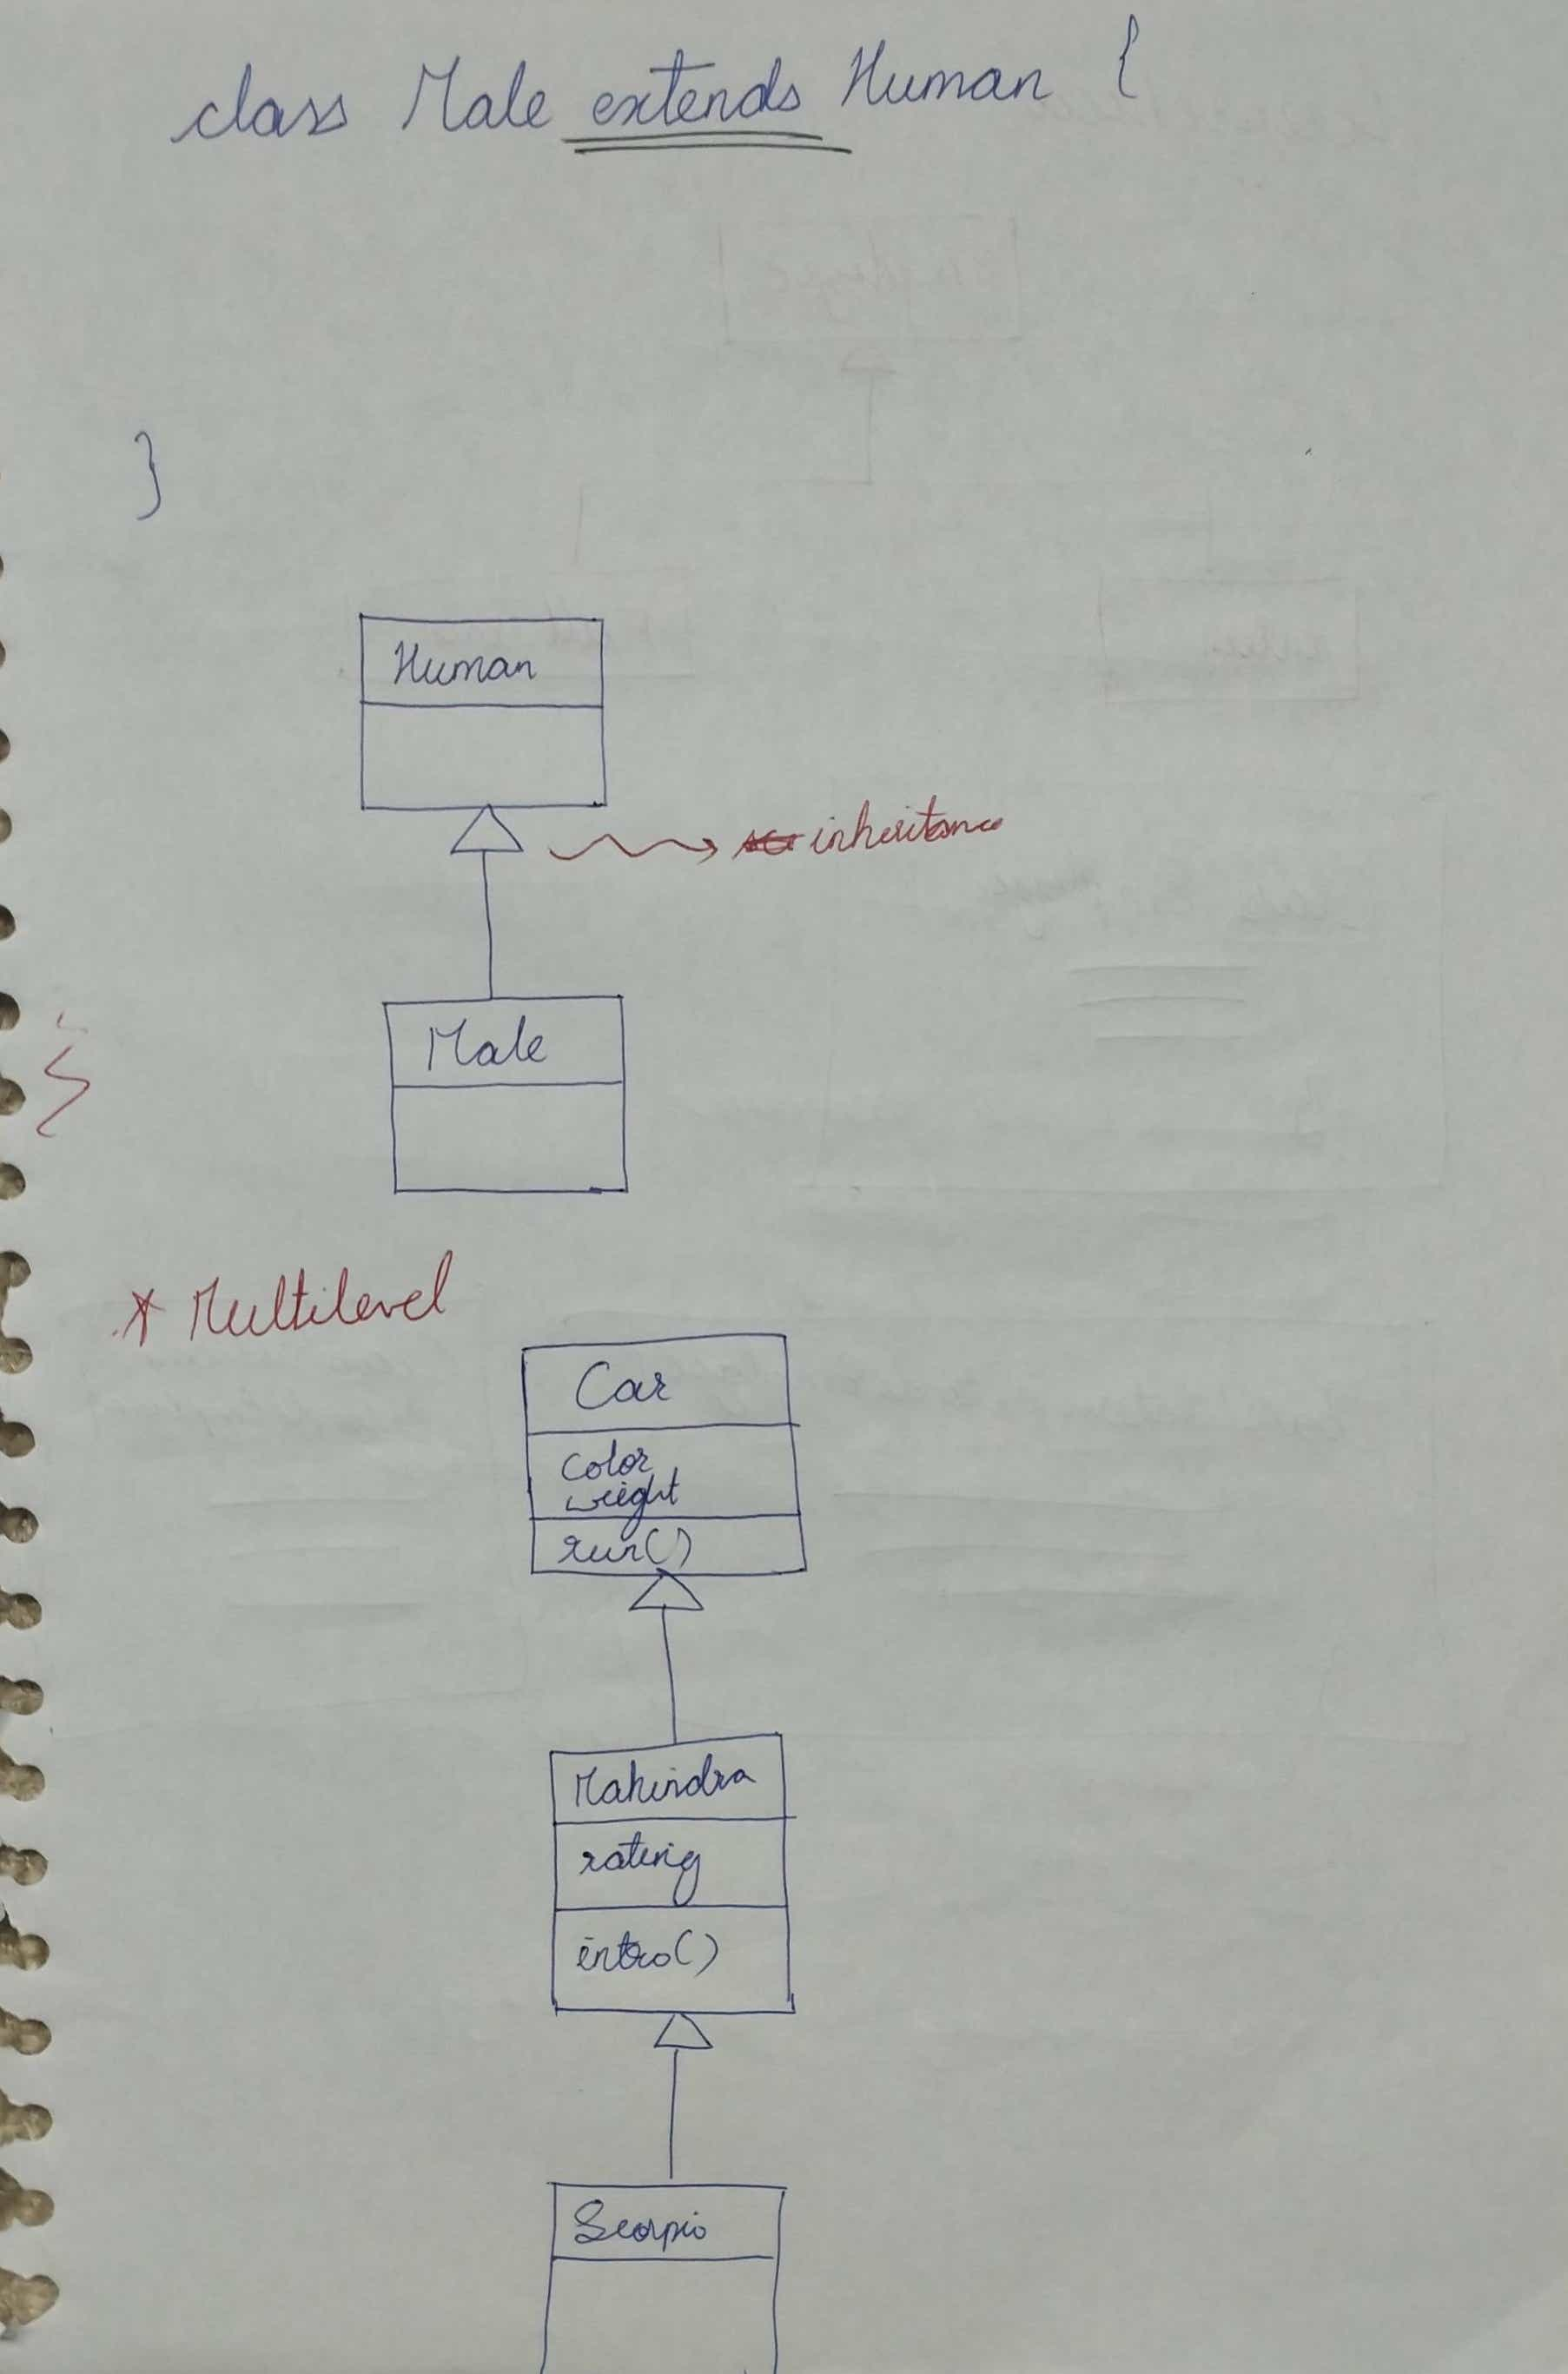 class Male extends Human {
}
Human
inheritance
Male
* Multilevel
Car
color
weight
run()
Mahindra
rating
intro()
Scorpio